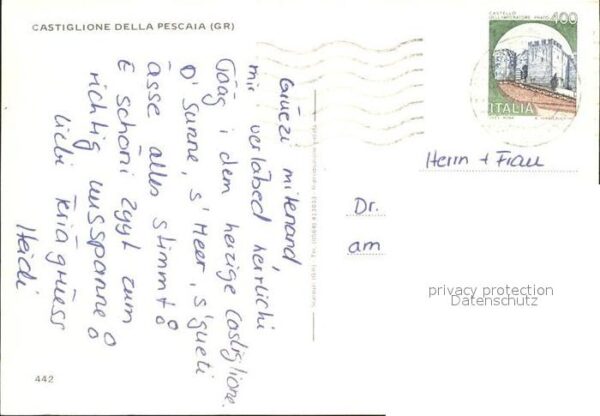 CASTIGLIONE DELLA PESCAIA (GR)
Grüezi mitenand
mir verläbed herrlichi
Tääg i dem herzige Castiglione.
D'Sunne, s'Meer, s'gueti
ässe alles stimmt.
E schöni Zyyt zum
richtig uusspanne
Liebi Feriägrüess
Heidi
442
CASTELLO
DELL'IMPERATORE. PRATO
400
ITALIA
Herrn + Frau
Dr.
am
privacy protection
Datenschutz